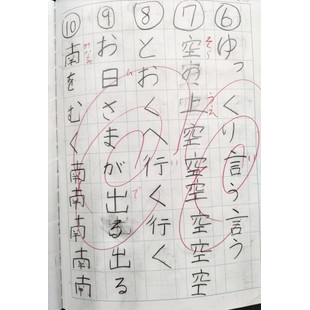 ⑥ゆっくり言う言う
⑦空の上空空空空空空
⑧とおくへ行く行く
⑨お日さまが出る出る
⑩南をむく南南南南南